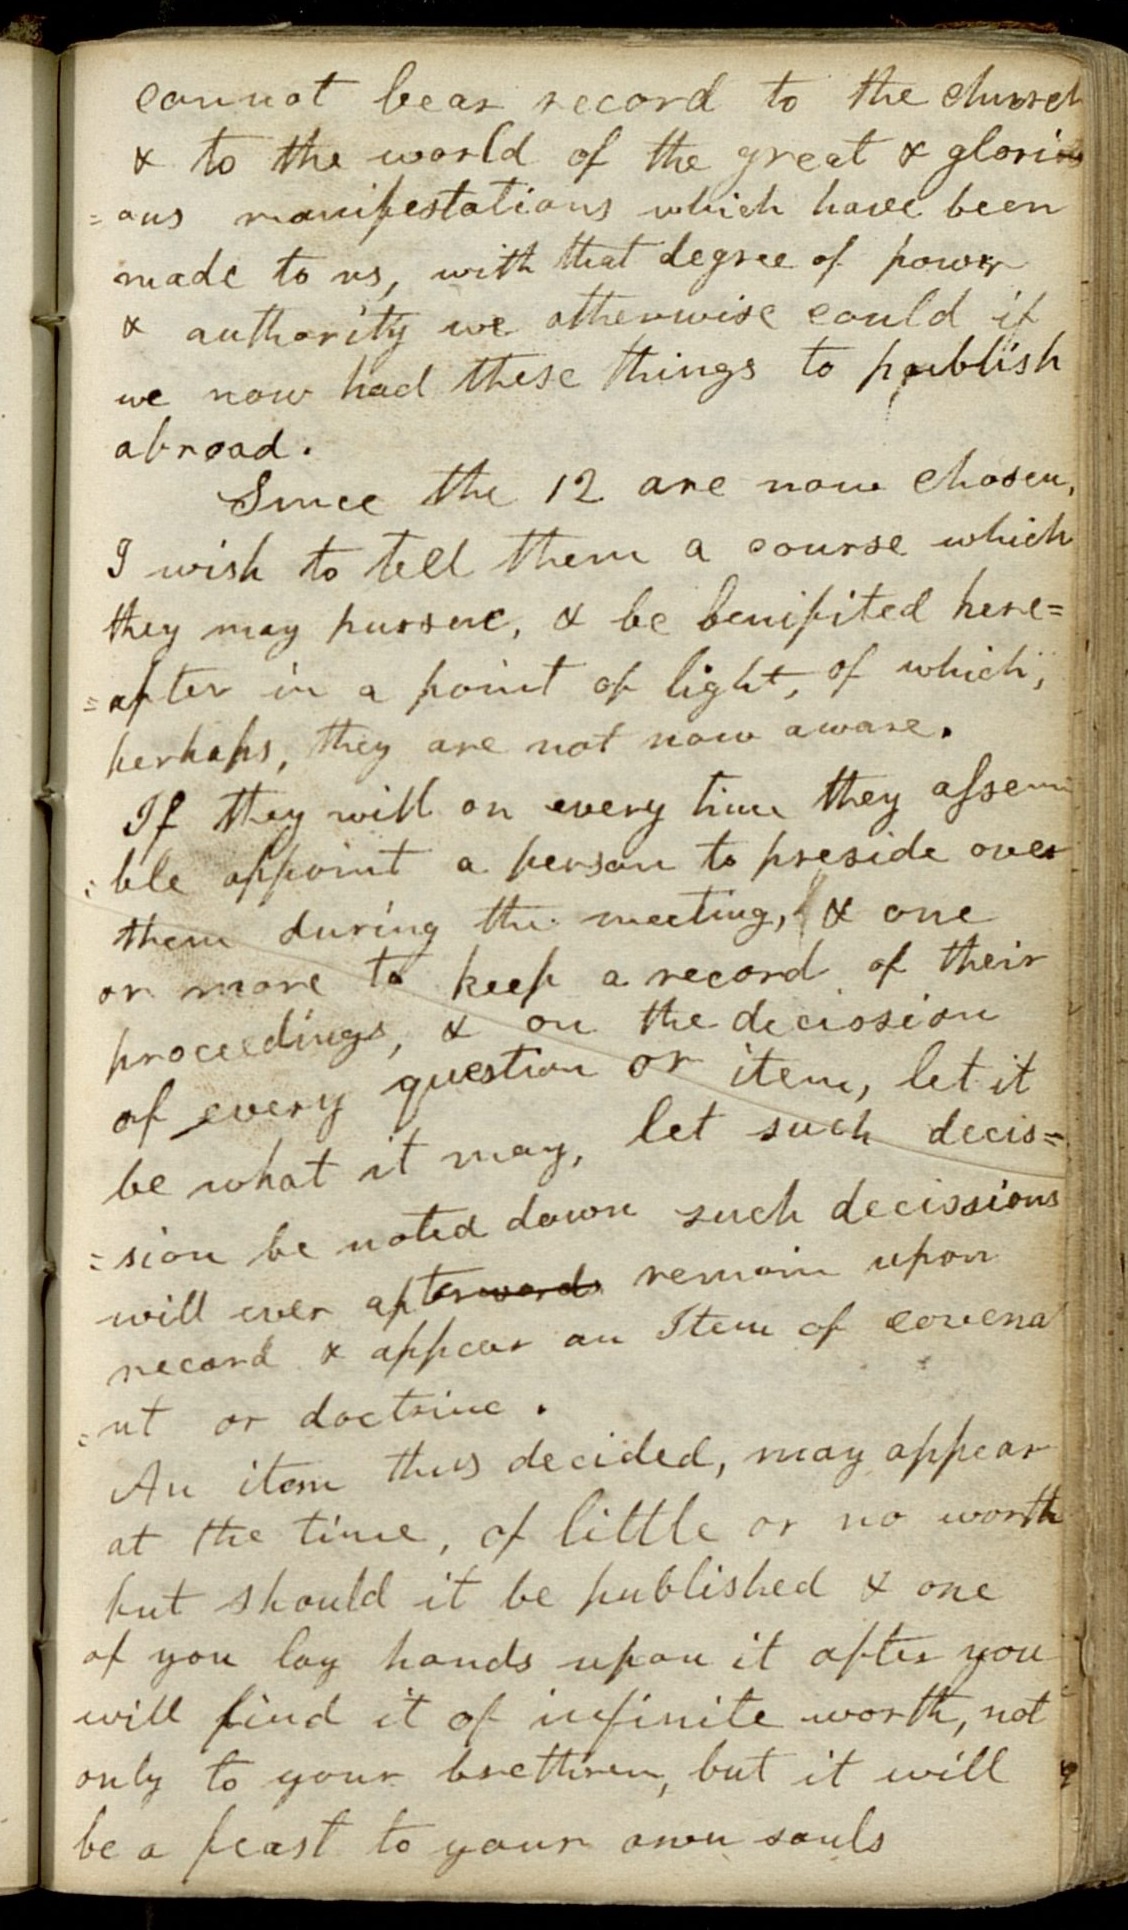 cannot bear record to the church
& to the world of the great & glori
=ous manifestations which have been
made to us, with that degree of power
& authority we otherwise could if
we now had these things to publish
abroad.
Since the 12 are now chosen,
I wish to tell them a course which
they may pursue, & be benifited here=
=after in a point of light, of which,
perhaps, they are not now aware.
If they will on every time they assem
:ble appoint a person to preside over
them during the meeting, & one
or more to keep a record of their
proceedings, & on the decission
of every question or item, let it
be what it may, let such decis=
=sion be noted down such decissions
will ever afterwards remain upon
record & appear an Item of covena
:nt or doctrine.
An item thus decided, may appear
at the time, of little or no worth
but should it be published & one
of you lay hands upon it after you
will find it of infinite worth, not
only to your brethren, but it will
be a feast to your own souls